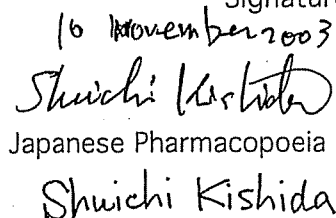 Signature
10 November 2003
Shuichi Kishida
Japanese Pharmacopoeia
Shuichi Kishida